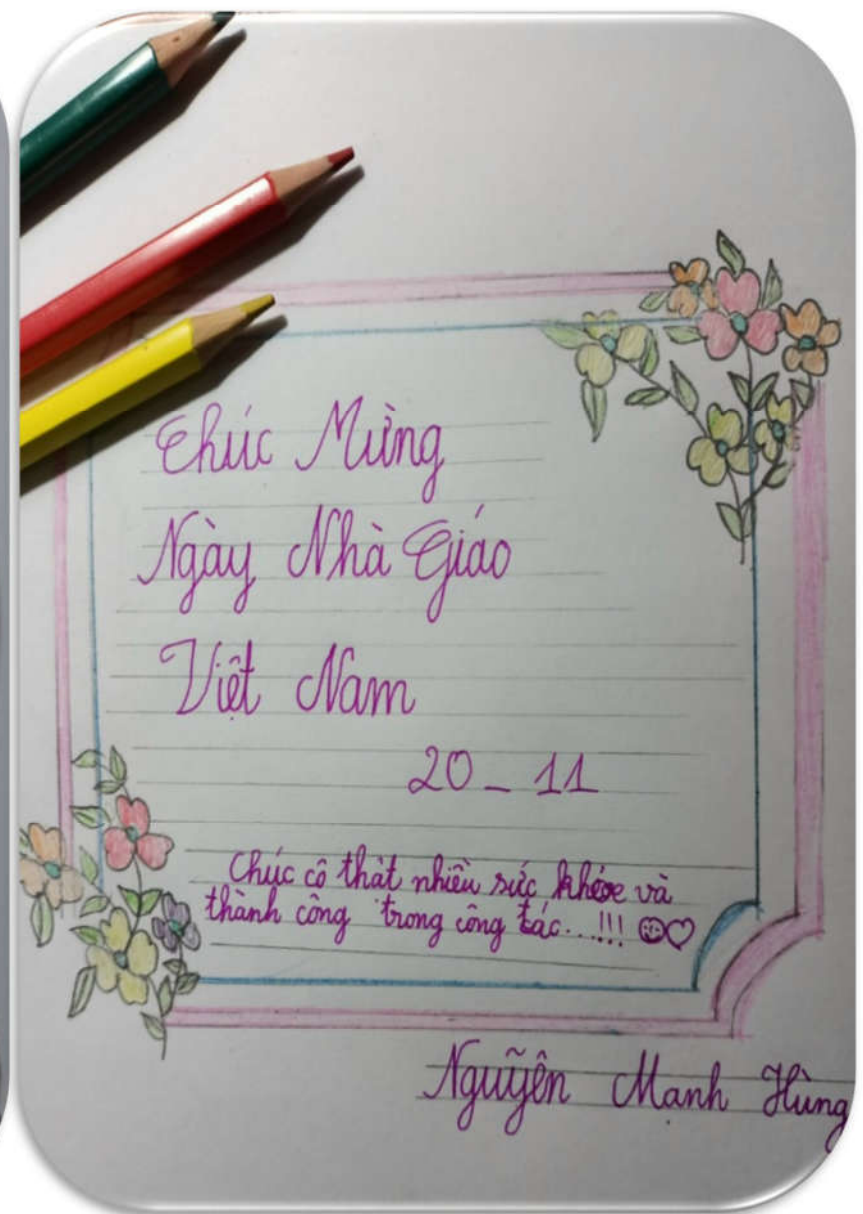 Chúc Mừng
Ngày Nhà Giáo
Việt Nam
20 _ 11
Chúc cô thật nhiều sức khỏe và
thành công trong công tác...!!! ☺♡
Nguyễn Mạnh Hùng